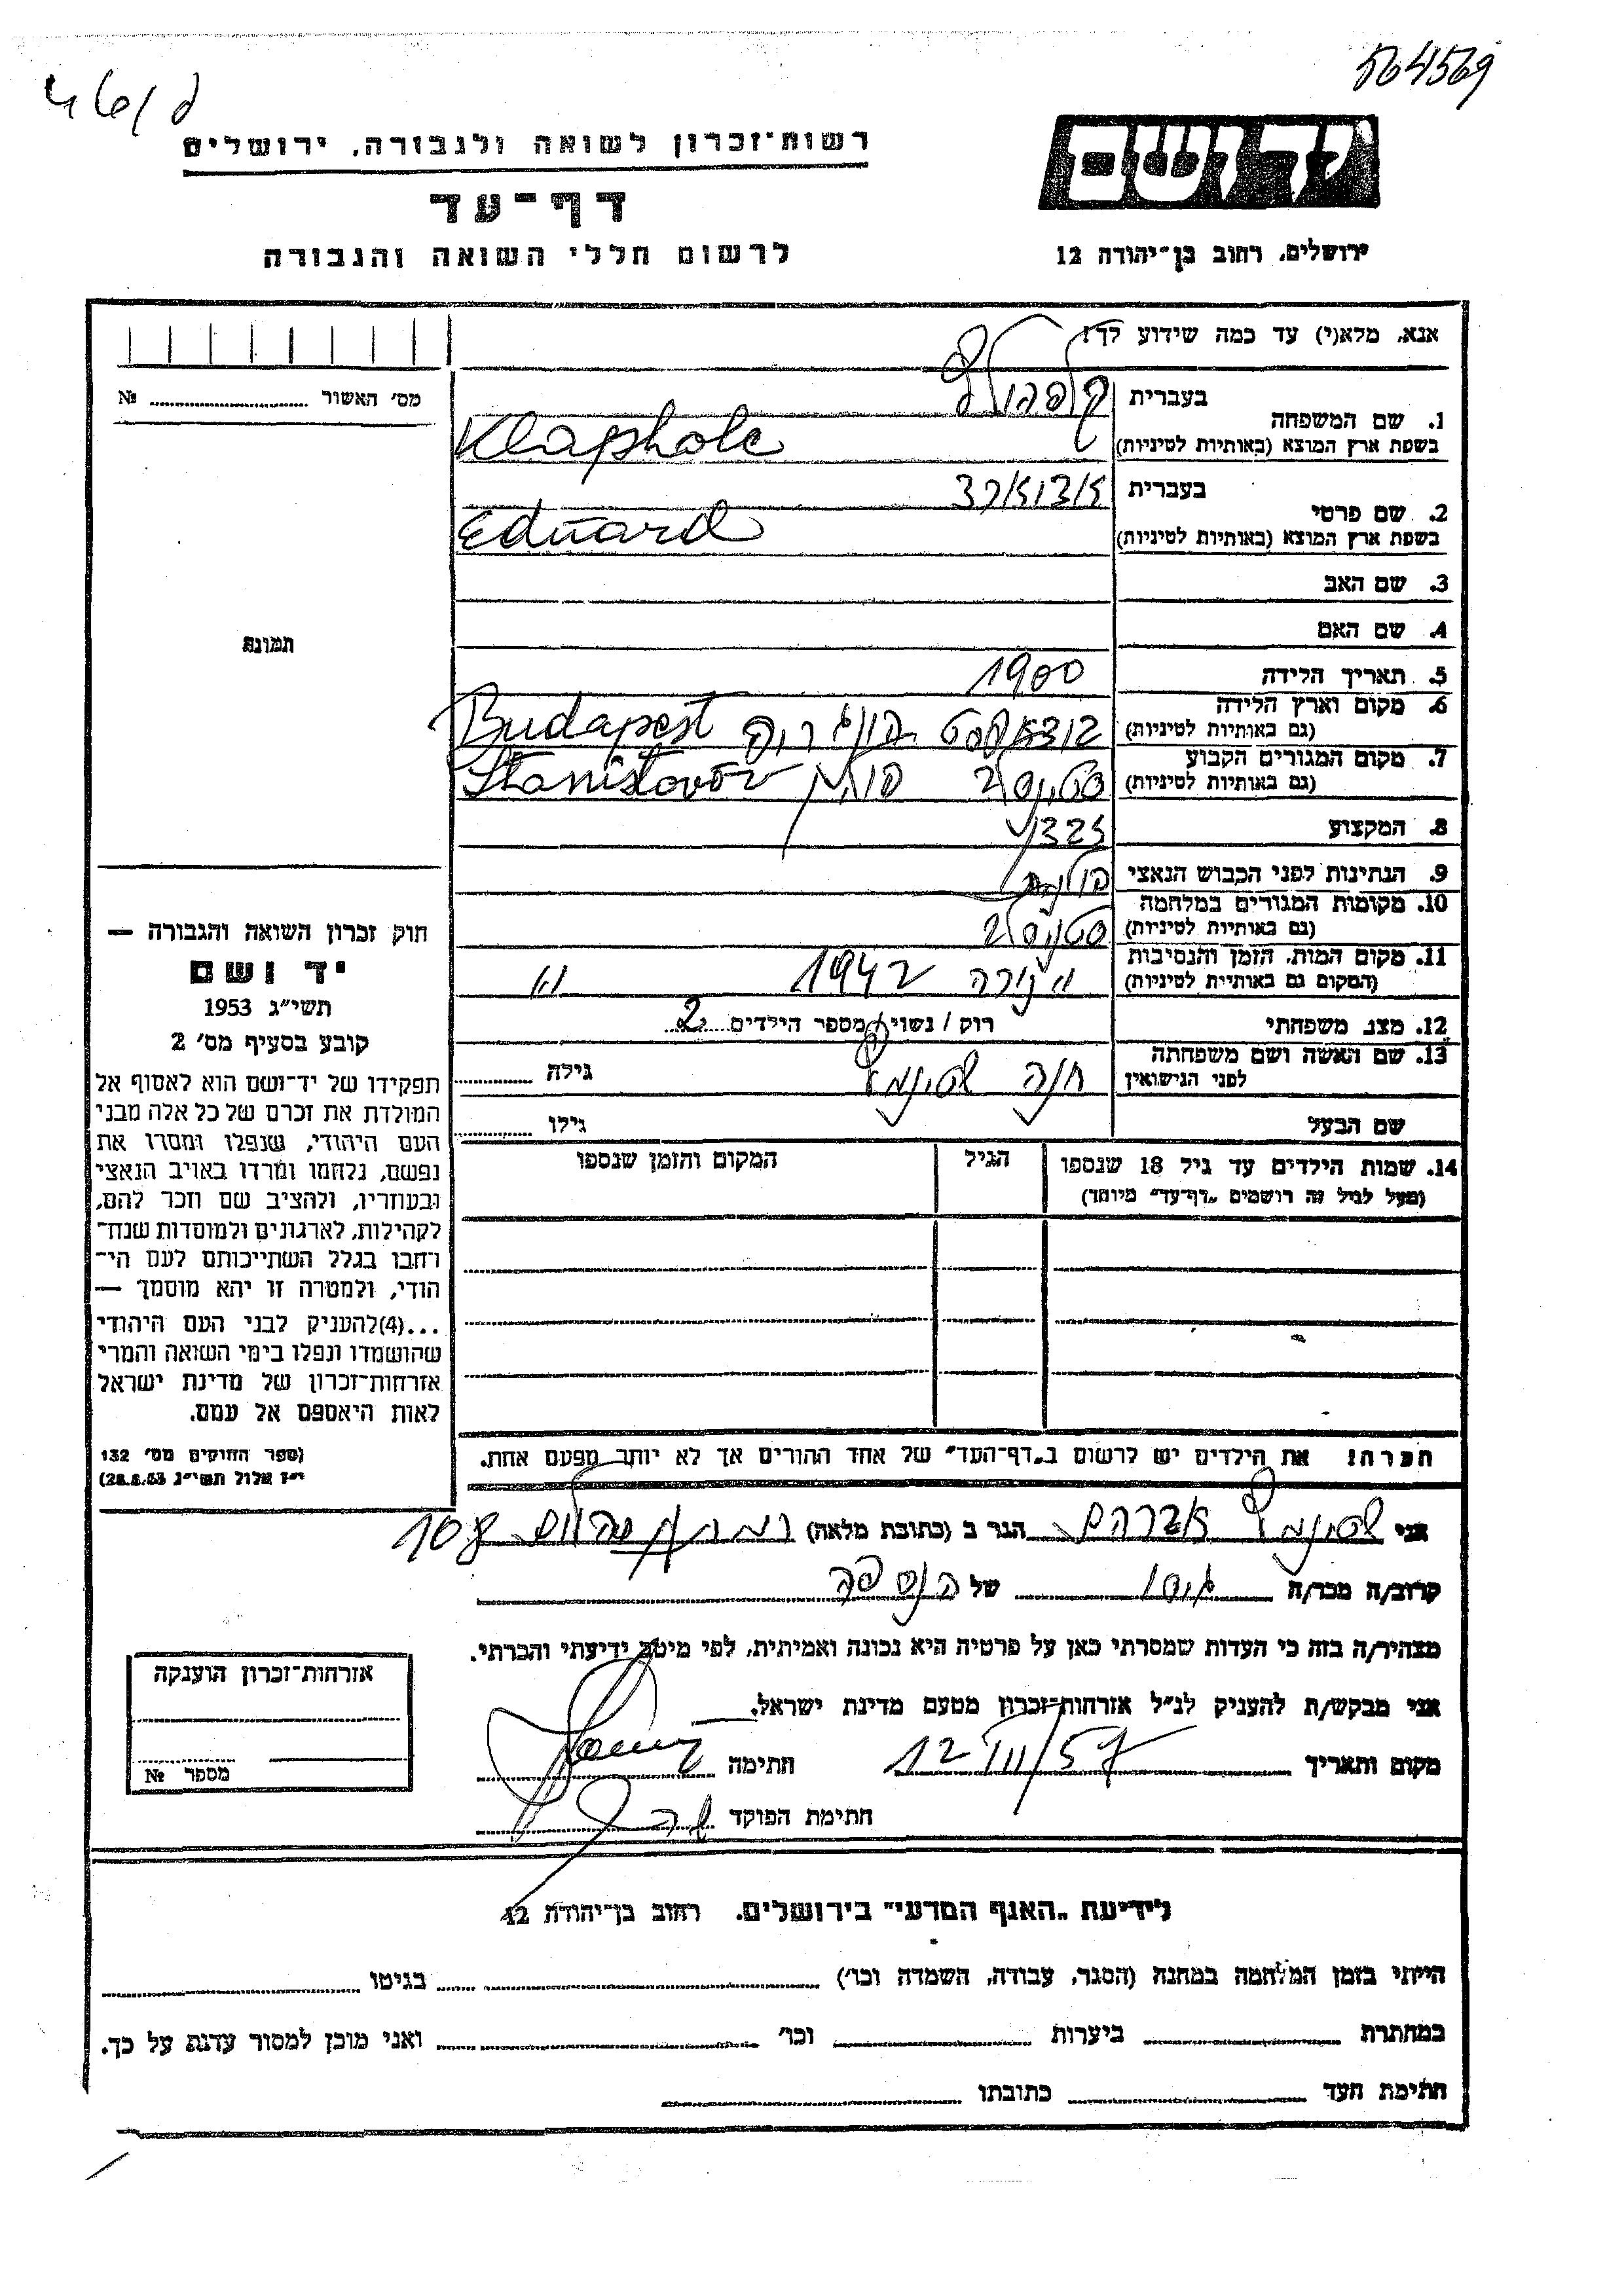 564569
רשות־זכרון לשואה ולגבורה, ירושלים
יד ושם
דף־עד
לרשום חללי השואה והגבורה
ירושלים, רחוב בן־יהודה 12
אנא, מלא(י) עד כמה שידוע לך!
מס׳ האשור № 
בעברית
1. שם המשפחה
בשפת ארץ המוצא (באותיות לטיניות) Klaphole
בעברית אדוארד
2. שם פרטי
בשפת ארץ המוצא (באותיות לטיניות) Eduard
3. שם האב
4. שם האם
תמונה
5. תאריך הלידה 1900
6. מקום וארץ הלידה
(גם באותיות לטיניות) בודאפסט Budapest
7. מקום המגורים הקבוע
(גם באותיות לטיניות) פולין
8. המקצוע
9. הנתינות לפני הכבוש הנאצי
10. מקומות המגורים במלחמה
(גם באותיות לטיניות)
11. מקום המות, הזמן והנסיבות
(המקום גם באותיות לטיניות) 1942
12. מצב משפחתי רוק / נשוי / מספר הילדים 2
13. שם האשה ושם משפחתה
לפני הנישואין חנה גילה
שם הבעל גילו
14. שמות הילדים עד גיל 18 שנספו הגיל המקום והזמן שנספו
(מעל לגיל זה רושמים „דף־עד" מיוחד)
הכרה! את הילדים יש לרשום ב„דף־העד" של אחד ההורים אך לא יותר מפעם אחת.
חוק זכרון השואה והגבורה —
יד ושם
תשי״ג 1953
קובע בסעיף מס׳ 2
תפקידו של יד־ושם הוא לאסוף אל
המולדת את זכרם של כל אלה מבני
העם היהודי, שנפלו ומסרו את
נפשם, נלחמו ומרדו באויב הנאצי
ובעוזריו, ולהציב שם וזכר להם,
לקהילות, לארגונים ולמוסדות שנח־
רחבו בגלל השתייכותם לעם הי־
הודי, ולמטרה זו יהא מוסמך —
...(4)להעניק לבני העם היהודי
שהושמדו ונפלו בימי השואה והמרי
אזרחות־זכרון של מדינת ישראל
לאות היאספם אל עמם.
(ספר החוקים מס׳ 132
י״ז אלול תשי״ג 28.8.53)
אני אברהם הגר ב (כתובת מלאה) 108
קרוב/ה מכר/ה גיסו של הנספה
מצהיר/ה בזה כי העדות שמסרתי כאן על פרטיה היא נכונה ואמיתית, לפי מיטב ידיעתי והכרתי.
אני מבקש/ת להעניק לנ״ל אזרחות־זכרון מטעם מדינת ישראל.
מקום ותאריך 12/III/57 חתימה
חתימת הפוקד
אזרחות־זכרון הוענקה
מספר №
לידיעת „האגף המדעי" בירושלים, רחוב בן־יהודה 12
הייתי בזמן המלחמה במחנה (הסגר, עבודה, השמדה וכו׳) בגיטו
במחתרת ביערות וכו׳ ואני מוכן למסור עדות על כך.
חתימת העד כתובתו